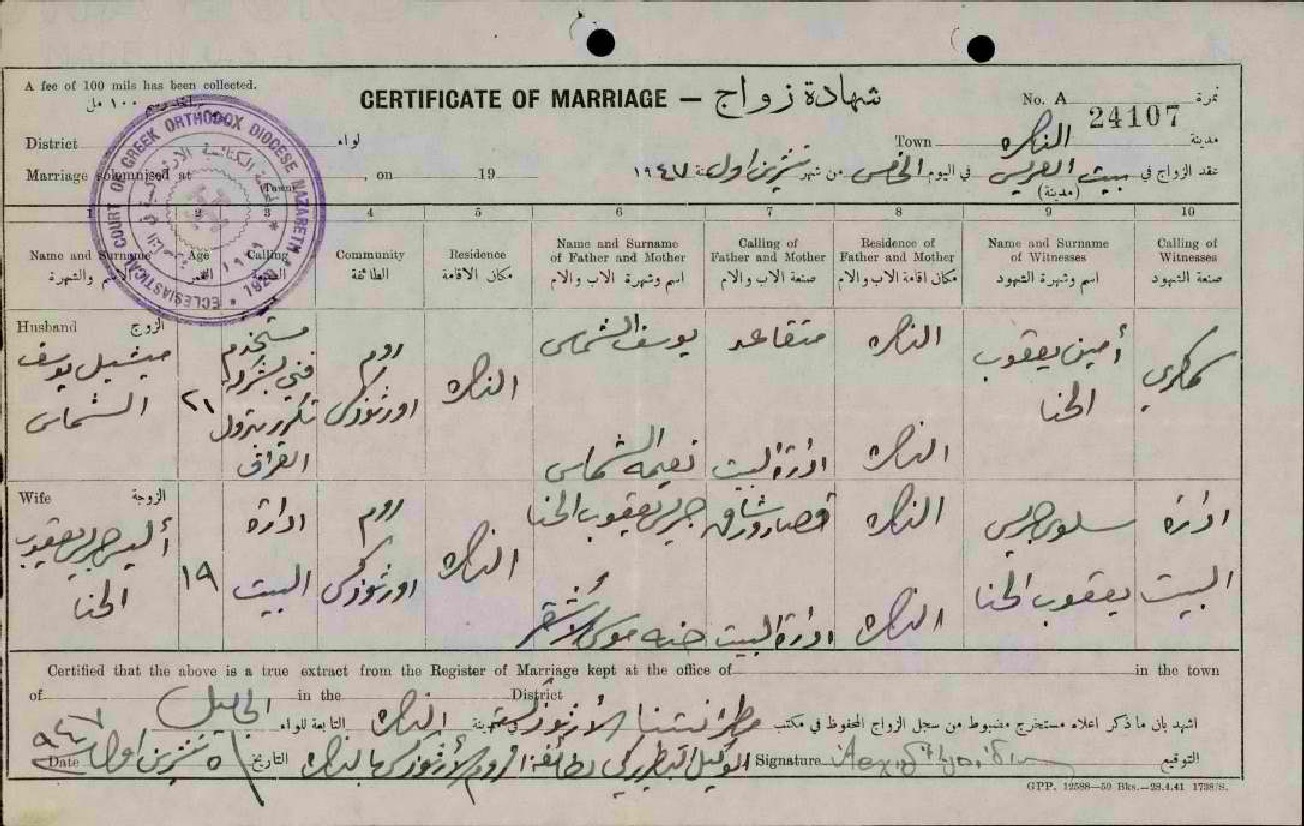 A fee of 100 mils has been collected.
١٠٠ مل
CERTIFICATE OF MARRIAGE — شهادة زواج
No. A 24107 نمرة
District لواء
Town الناصرة مدينة
Marriage solemnised at , on 19
(Town)
عقد الزواج في بيت العريس في اليوم الخامس من شهر تشرين اول سنة ١٩٤٧
(مدينة)
1 2 3 4 5 6 7 8 9 10
Name and Surname Age Calling Community Residence Name and Surname of Father and Mother Calling of Father and Mother Residence of Father and Mother Name and Surname of Witnesses Calling of Witnesses
الاسم والشهرة العمر الصنعة الطائفة مكان الاقامة اسم وشهرة الاب والام صنعة الاب والام مكان اقامة الاب والام اسم وشهرة الشهود صنعة الشهود
Husband الزوج
ميشيل يوسف الشماس
٢١
مستخدم فني بشركة تكرير بترول العراق
روم اورثوذكس
الناصرة
يوسف الشماس
متقاعد
الناصرة
نعيمه الشماس
ادارة البيت
الناصرة
أمين يعقوب الحنا
سمكري
Wife الزوجة
أليس جريس يعقوب الحنا
١٩
ادارة البيت
روم اورثوذكس
الناصرة
جريس يعقوب الحنا
الناصرة
حنه موسى الأشقر
ادارة البيت
الناصرة
سلوى جريس يعقوب الحنا
ادارة البيت
Certified that the above is a true extract from the Register of Marriage kept at the office of in the town
of in the District
اشهد بان ما ذكر اعلاه مستخرج مضبوط من سجل الزواج المحفوظ في مكتب مطرانيتنا الأرثوذكسية بمدينة الناصرة التابعة للواء الجليل
Date ٥ تشرين اول ٩٤٧ التاريخ
الوكيل البطريركي لطائفة الروم الأرثوذكس بالناصرة
Signature التوقيع
GPP. 12588—50 Bks.—28.4.41 1738/S.
ECLESIASTICAL COURT OF GREEK ORTHODOX DIOCESE NAZARETH